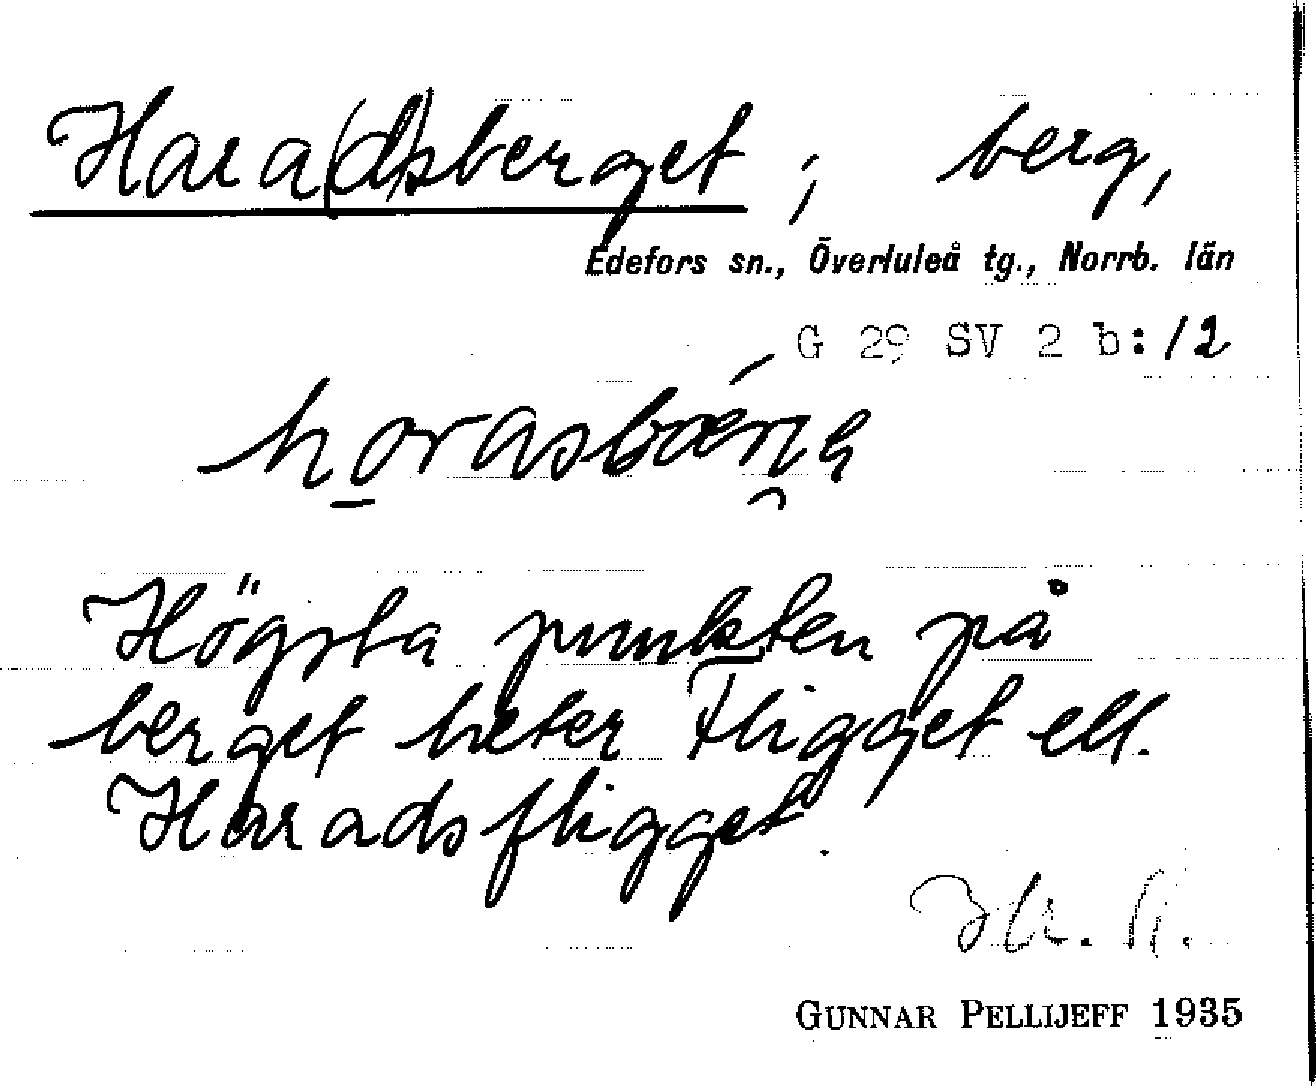 Hara(d)sberget, berg,
Edefors sn., Överluleå tg., Norrb. län
G 29 SV 2 b:12
Högsta punkten på
berget heter Fligget ell.
Haradsfligget.
GUNNAR PELLIJEFF 1935